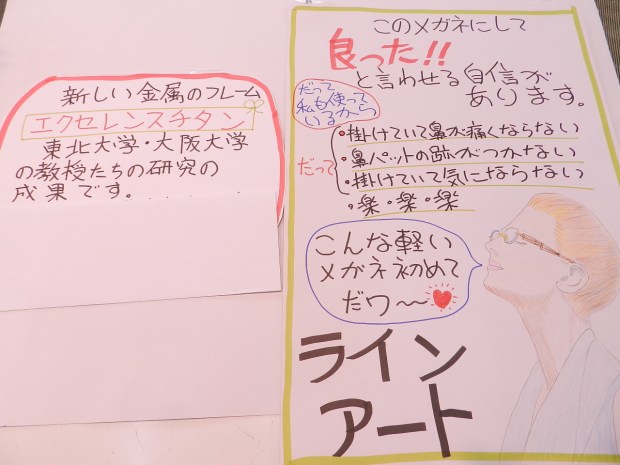 新しい金属のフレーム
エクセレンスチタン
東北大学・大阪大学
の教授たちの研究の
成果です。
このメガネにして
良った!!
と言わせる自信が
あります。
だって
私も使って
いるから
だって
・掛けていて鼻が痛くならない
・鼻パットの跡がつかない
・掛けていて気にならない
・楽・楽・楽
こんな軽い
メガネ初めて
だワ～
ライン
アート